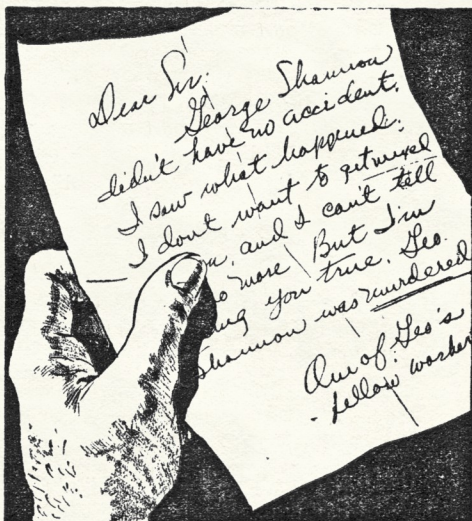 Dear Sir:
George Shannon
didn't have no accident.
I saw what happened.
I dont want to get mixed
and I can't tell
more But I'm
you true. Geo.
Shannon was murdered
One of Geo's
fellow worker